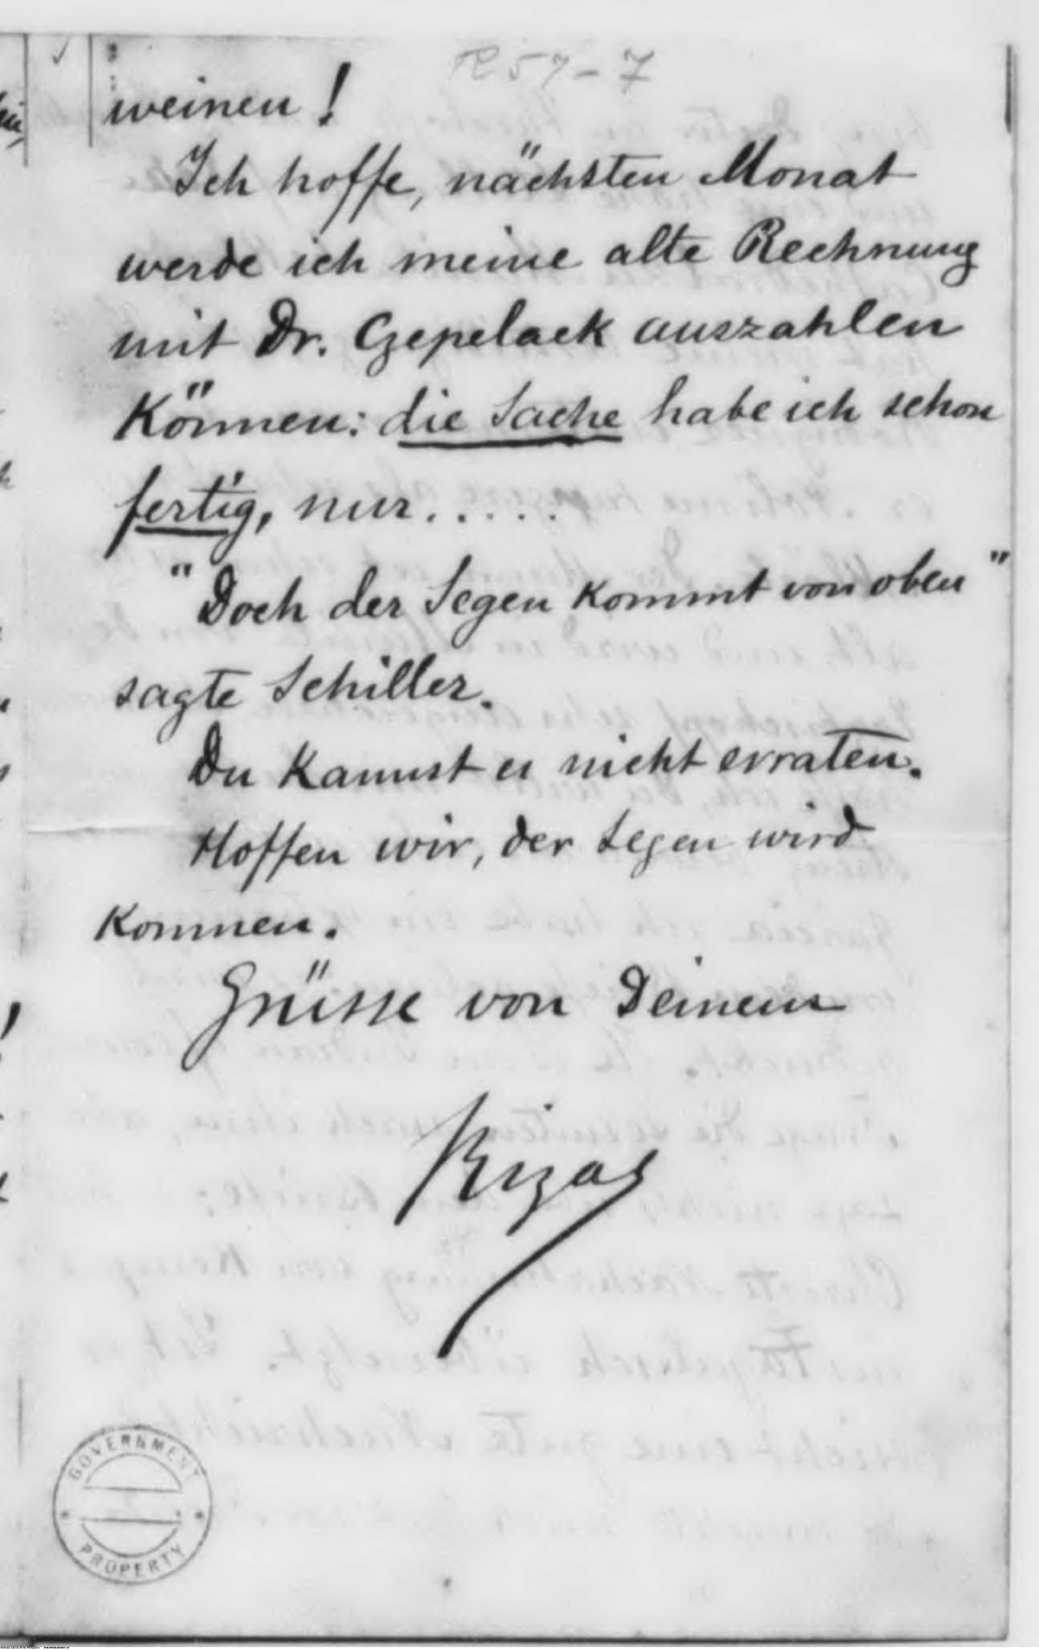 R57-7
weinen!
Ich hoffe, nächsten Monat
werde ich meine alte Rechnung
mit Dr. Czepelack auszahlen
Können: die Sache habe ich schon
fertig, nur.....
"Doch der Segen kommt von oben"
sagte Schiller.
Du Kannst es nicht erraten.
Hoffen wir, der Segen wird
Kommen.
Grüsse von Deinem
Rizal
GOVERNMENT
PROPERTY